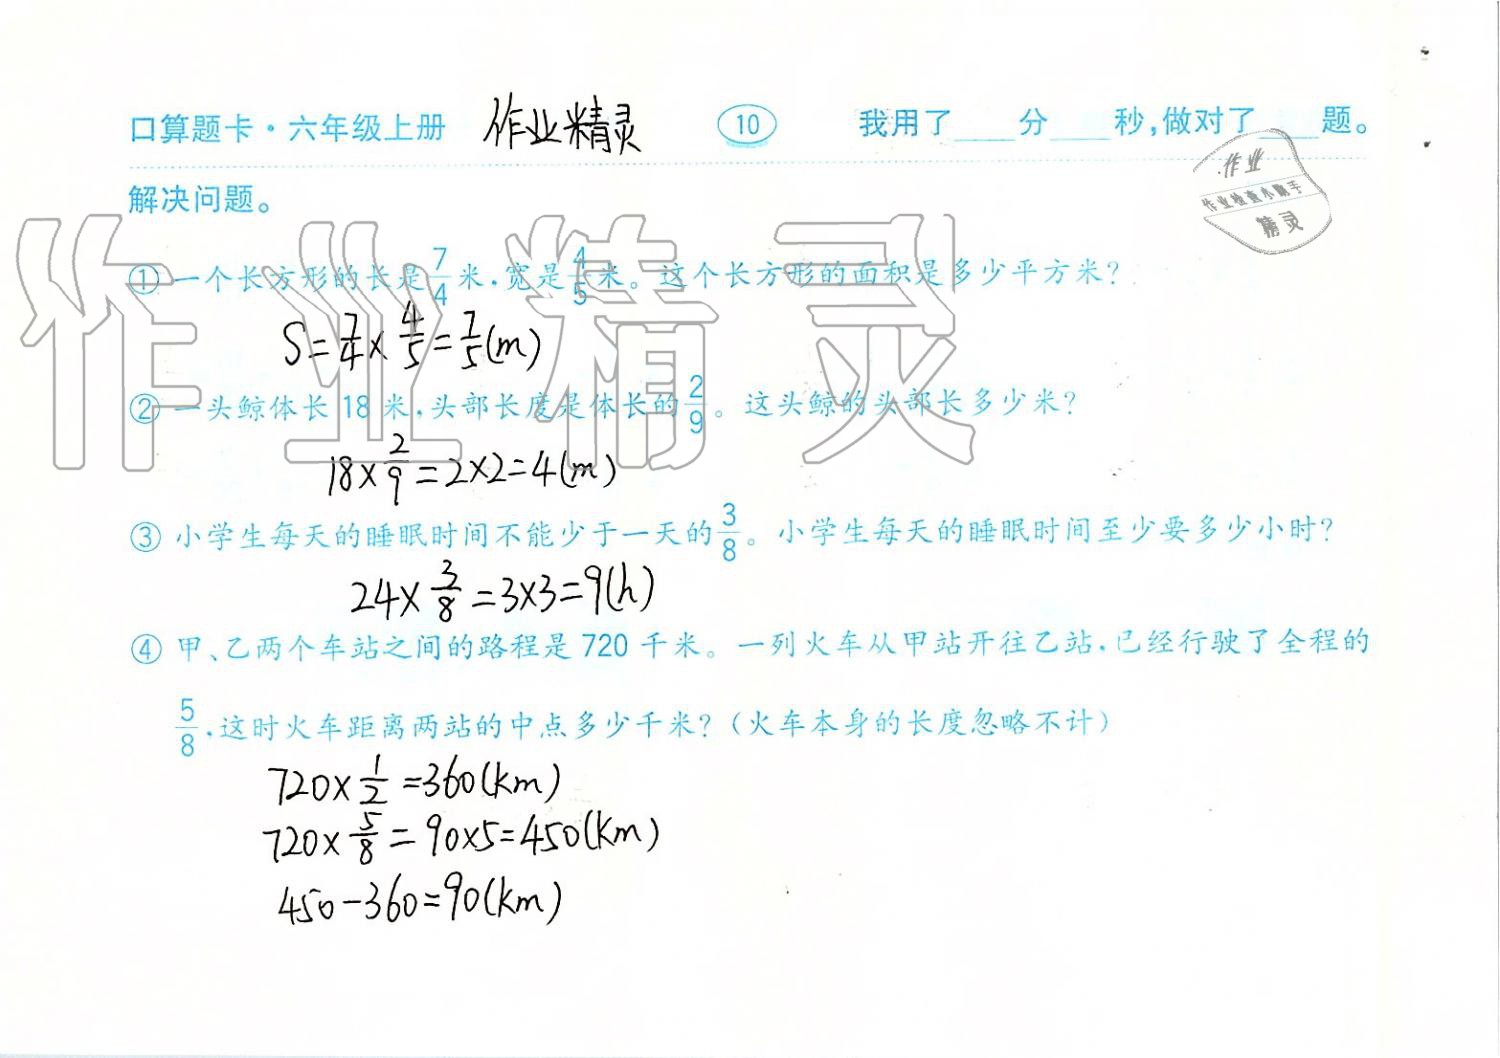 口算题卡·六年级上册 作业精灵 10 我用了____分____秒,做对了____题。
作业
作业检查小助手
精灵
解决问题。
作业精灵
① 一个长方形的长是7/4米,宽是4/5米。这个长方形的面积是多少平方米?
S=7/4×4/5=7/5(m)
② 一头鲸体长18米,头部长度是体长的2/9。这头鲸的头部长多少米?
18×2/9=2×2=4(m)
③ 小学生每天的睡眠时间不能少于一天的3/8。小学生每天的睡眠时间至少要多少小时?
24×3/8=3×3=9(h)
④ 甲、乙两个车站之间的路程是720千米。一列火车从甲站开往乙站,已经行驶了全程的
5/8,这时火车距离两站的中点多少千米?(火车本身的长度忽略不计)
720×1/2=360(km)
720×5/8=90×5=450(km)
450-360=90(km)